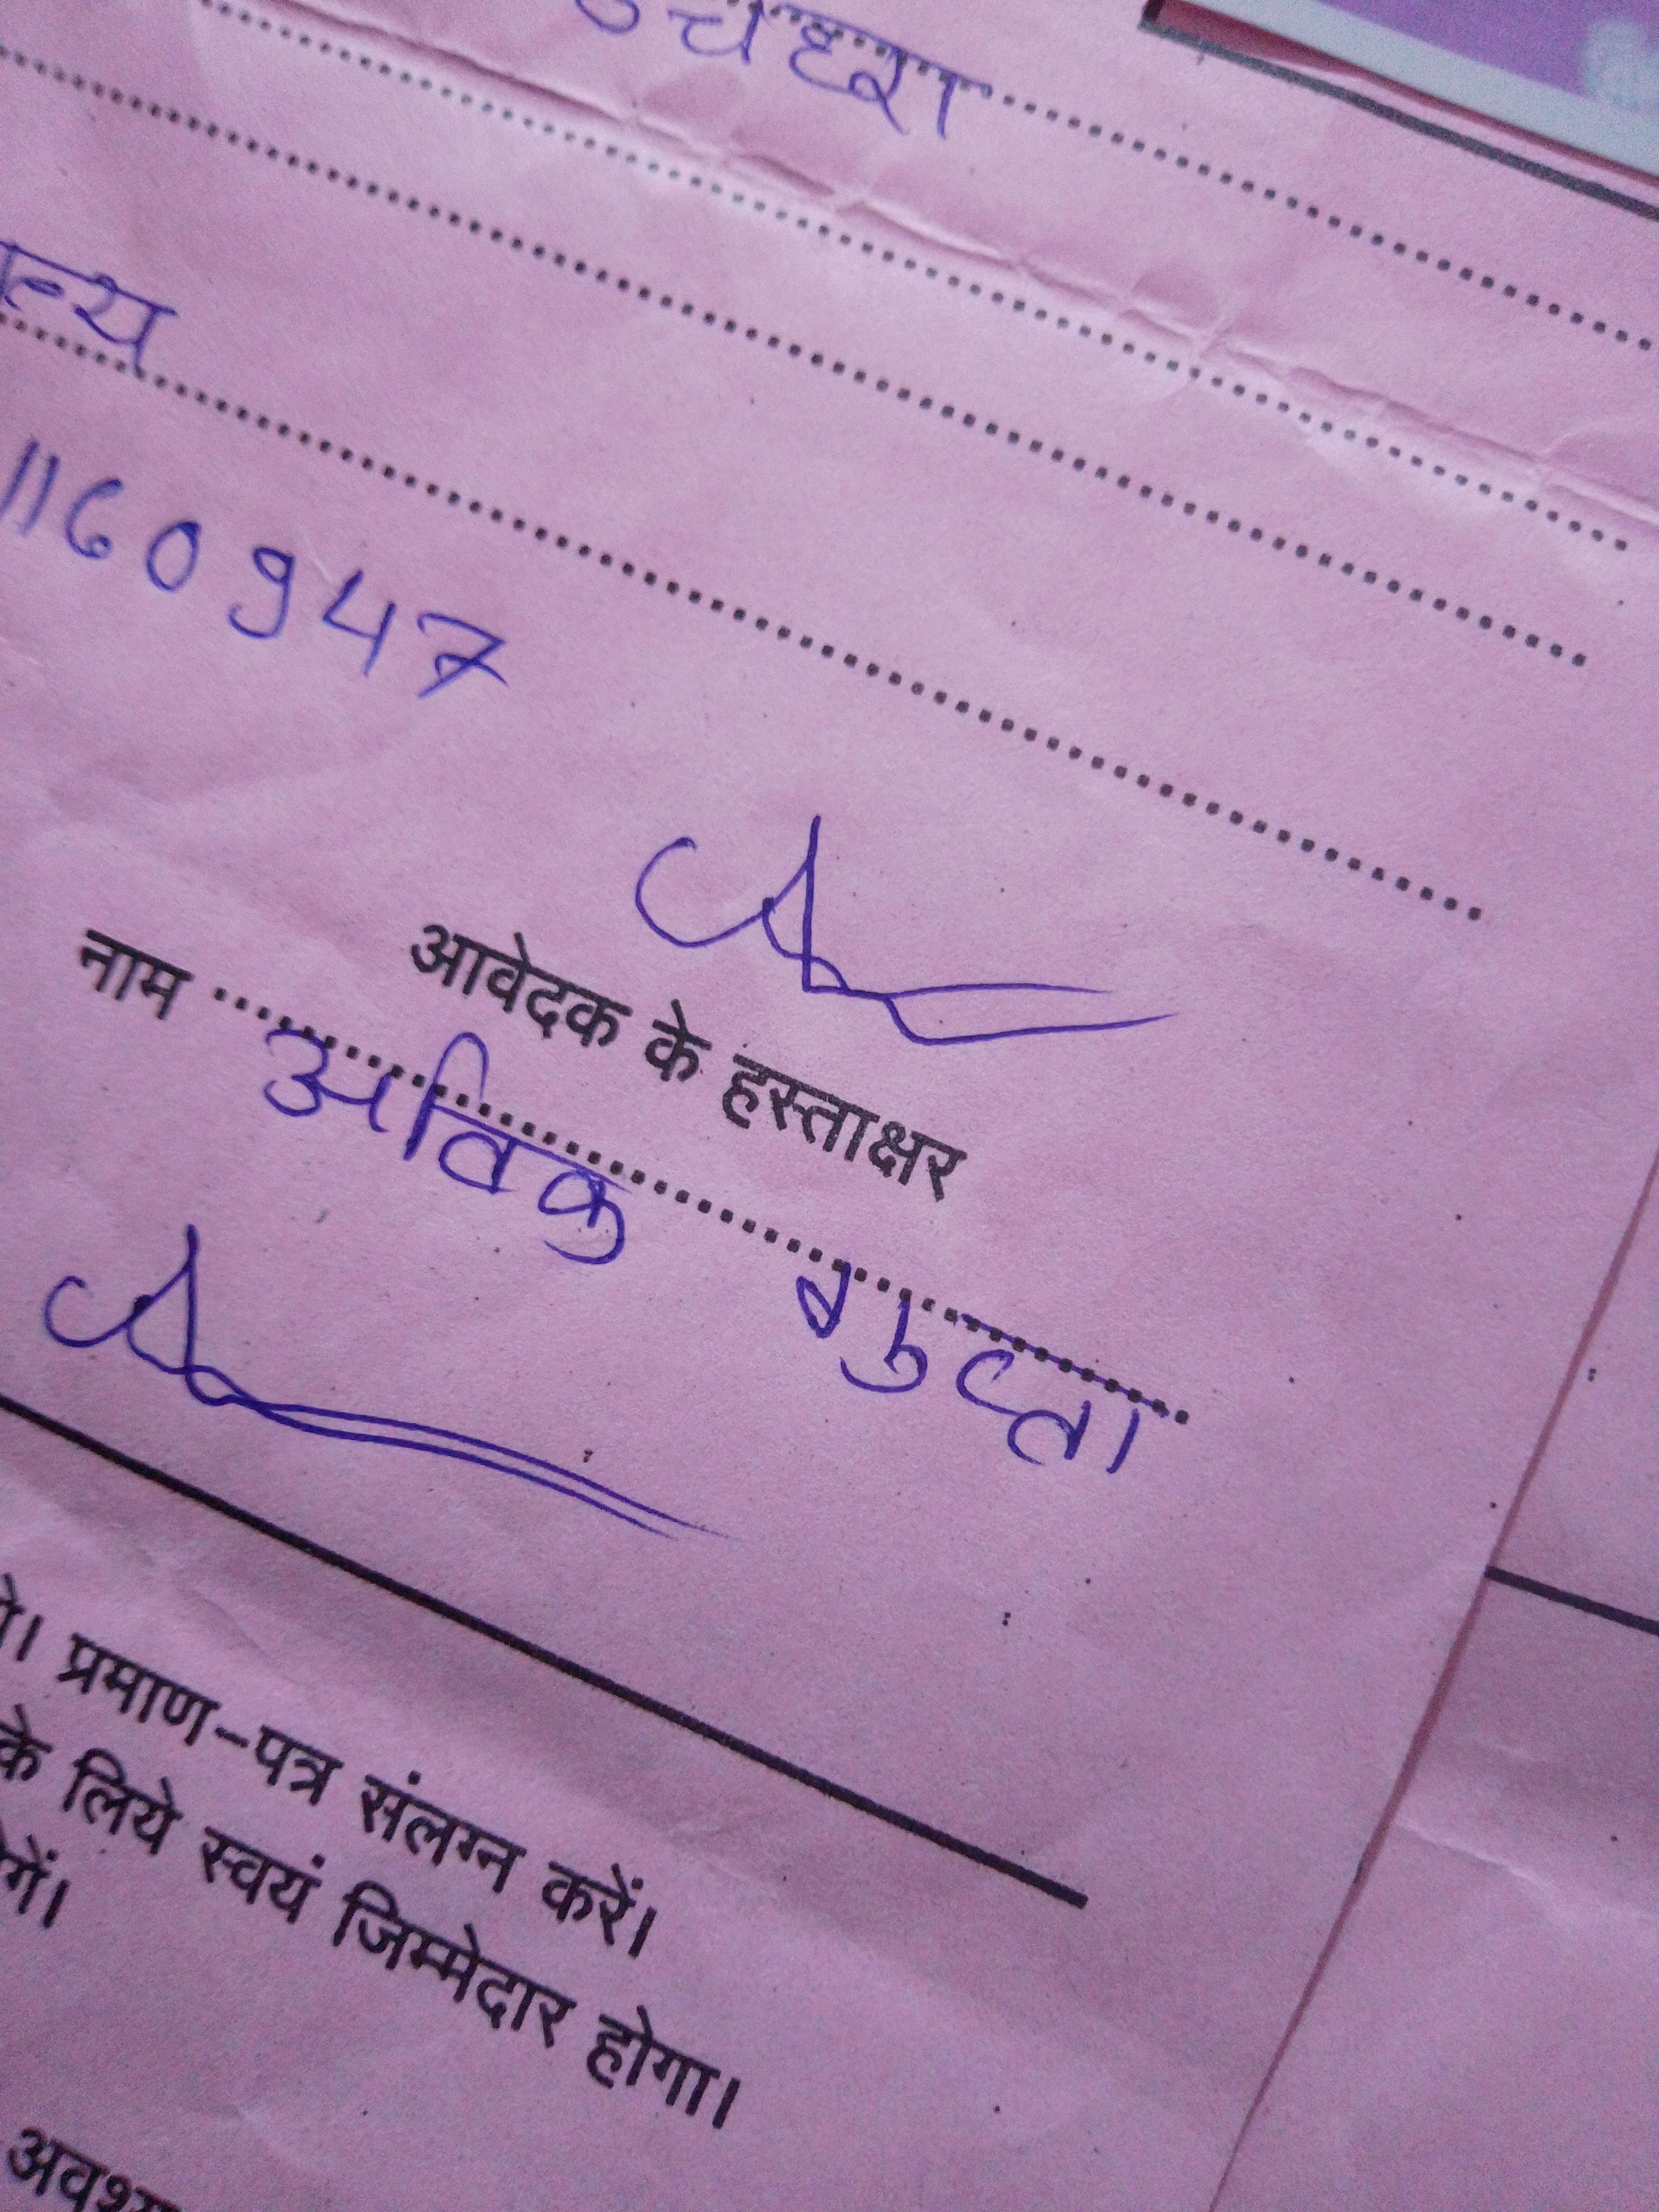 उचेहरा
1160947
आवेदक के हस्ताक्षर
नाम ........ अविक गुप्ता
प्रमाण-पत्र संलग्न करें।
के लिये स्वयं जिम्मेदार होगा।